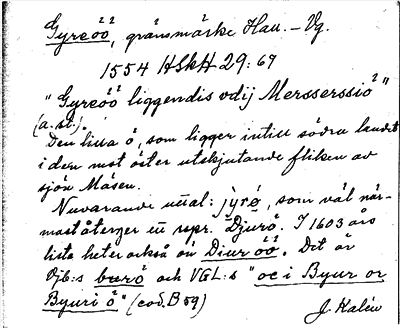 Gyreöö, gränsmärke Hall. – Vg.
1554 HSkH 29: 69
"Gyreöö liggendis vdij Mersserssiö"
(a. st.).
Den lilla ö, som ligger intill södra landet
i den mot öster utskjutande fliken av
sjön Måsen.
Nuvarande uttal: jỳrø, som väl när-
mast återger ett rspr. Djurö. I 1603 års
lista heter också ön Diur öö. Det är
Ojb:s burö och VGL:s "oc i Byur or
Byuri ö" (cod. B 59)
J. Kalén